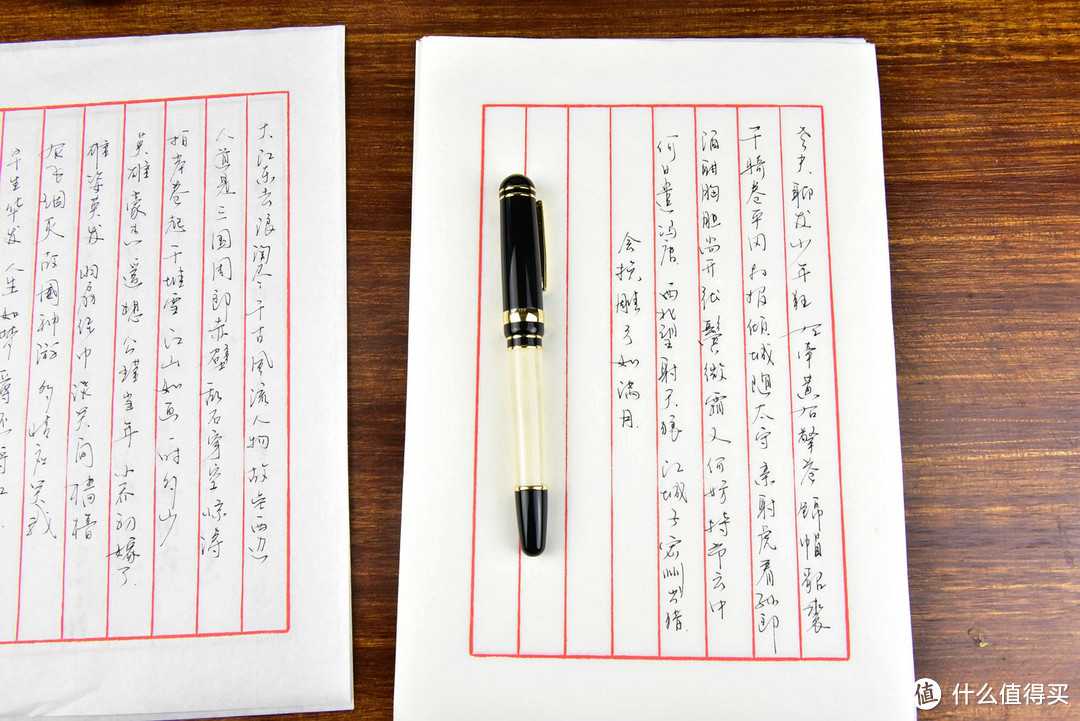 老夫聊发少年狂 左牵黄右擎苍 锦帽貂裘
千骑卷平冈 为报倾城随太守 亲射虎看孙郎
酒酣胸胆尚开张 鬓微霜又何妨 持节云中
何日遣冯唐 西北望射天狼 江城子密州出猎
会挽雕弓如满月
大江东去浪淘尽千古风流人物故垒西边
人道是三国周郎赤壁 乱石穿空惊涛
拍岸卷起千堆雪 江山如画一时多少
英雄豪杰 遥想公瑾当年小乔初嫁了
雄姿英发 羽扇纶巾谈笑间 樯橹
灰飞烟灭 故國神游 多情应笑我
早生华发 人生如梦 一尊还酹江
值 什么值得买